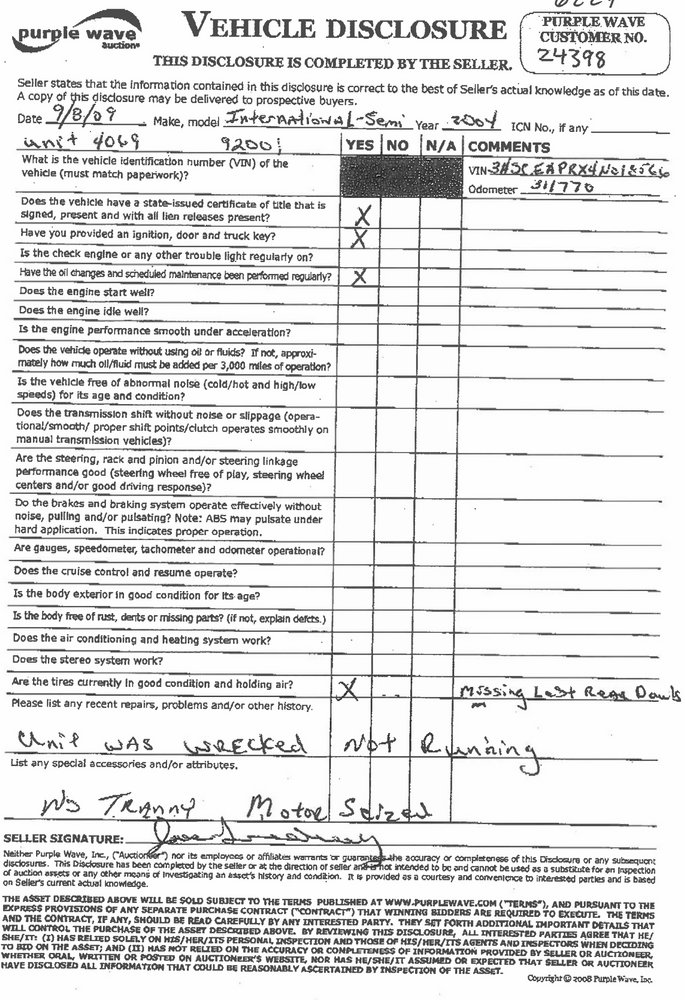 purple wave
auction®
VEHICLE DISCLOSURE
PURPLE WAVE
CUSTOMER NO.
24398
THIS DISCLOSURE IS COMPLETED BY THE SELLER.
Seller states that the information contained in this disclosure is correct to the best of Seller's actual knowledge as of this date.
A copy of this disclosure may be delivered to prospective buyers.
Date 9/8/09 Make, model International-Semi Year 2004 ICN No., if any
unit 4069 9200i YES NO N/A COMMENTS
What is the vehicle identification number (VIN) of the
vehicle (must match paperwork)?
VIN
Odometer 311770
Does the vehicle have a state-issued certificate of title that is
signed, present and with all lien releases present? X
Have you provided an ignition, door and truck key? X
Is the check engine or any other trouble light regularly on?
Have the oil changes and scheduled maintenance been performed regularly? X
Does the engine start well?
Does the engine idle well?
Is the engine performance smooth under acceleration?
Does the vehicle operate without using oil or fluids? If not, approxi-
mately how much oil/fluid must be added per 3,000 miles of operation?
Is the vehicle free of abnormal noise (cold/hot and high/low
speeds) for its age and condition?
Does the transmission shift without noise or slippage (opera-
tional/smooth/ proper shift points/clutch operates smoothly on
manual transmission vehicles)?
Are the steering, rack and pinion and/or steering linkage
performance good (steering wheel free of play, steering wheel
centers and/or good driving response)?
Do the brakes and braking system operate effectively without
noise, pulling and/or pulsating? Note: ABS may pulsate under
hard application. This indicates proper operation.
Are gauges, speedometer, tachometer and odometer operational?
Does the cruise control and resume operate?
Is the body exterior in good condition for its age?
Is the body free of rust, dents or missing parts? (if not, explain defcts.)
Does the air conditioning and heating system work?
Does the stereo system work?
Are the tires currently in good condition and holding air? X Missing Last Rear
Please list any recent repairs, problems and/or other history.
Unit was wrecked Not Running
List any special accessories and/or attributes.
No Tranny Motor Seized
SELLER SIGNATURE:
Neither Purple Wave, Inc., ("Auctioneer") nor its employees or affiliates warrants or guarantees the accuracy or completeness of this Disclosure or any subsequent
disclosures. This Disclosure has been completed by the seller or at the direction of seller and is not intended to be and cannot be used as a substitute for an inspection
of auction assets or any other means of investigating an asset's history and condition. It is provided as a courtesy and convenience to interested parties and is based
on Seller's current actual knowledge.
THE ASSET DESCRIBED ABOVE WILL BE SOLD SUBJECT TO THE TERMS PUBLISHED AT WWW.PURPLEWAVE.COM ("TERMS"), AND PURSUANT TO THE
EXPRESS PROVISIONS OF ANY SEPARATE PURCHASE CONTRACT ("CONTRACT") THAT WINNING BIDDERS ARE REQUIRED TO EXECUTE. THE TERMS
AND THE CONTRACT, IF ANY, SHOULD BE READ CAREFULLY BY ANY INTERESTED PARTY. THEY SET FORTH ADDITIONAL IMPORTANT DETAILS THAT
WILL CONTROL THE PURCHASE OF THE ASSET DESCRIBED ABOVE. BY REVIEWING THIS DISCLOSURE, ALL INTERESTED PARTIES AGREE THAT HE/
SHE/IT: (I) HAS RELIED SOLELY ON HIS/HER/ITS PERSONAL INSPECTION AND THOSE OF HIS/HER/ITS AGENTS AND INSPECTORS WHEN DECIDING
TO BID ON THE ASSET; AND (II) HAS NOT RELIED ON THE ACCURACY OR COMPLETENESS OF INFORMATION PROVIDED BY SELLER OR AUCTIONEER,
WHETHER ORAL, WRITTEN OR POSTED ON AUCTIONEER'S WEBSITE, NOR HAS HE/SHE/IT ASSUMED OR EXPECTED THAT SELLER OR AUCTIONEER
HAVE DISCLOSED ALL INFORMATION THAT COULD BE REASONABLY ASCERTAINED BY INSPECTION OF THE ASSET.
Copyright © 2008 Purple Wave, Inc.